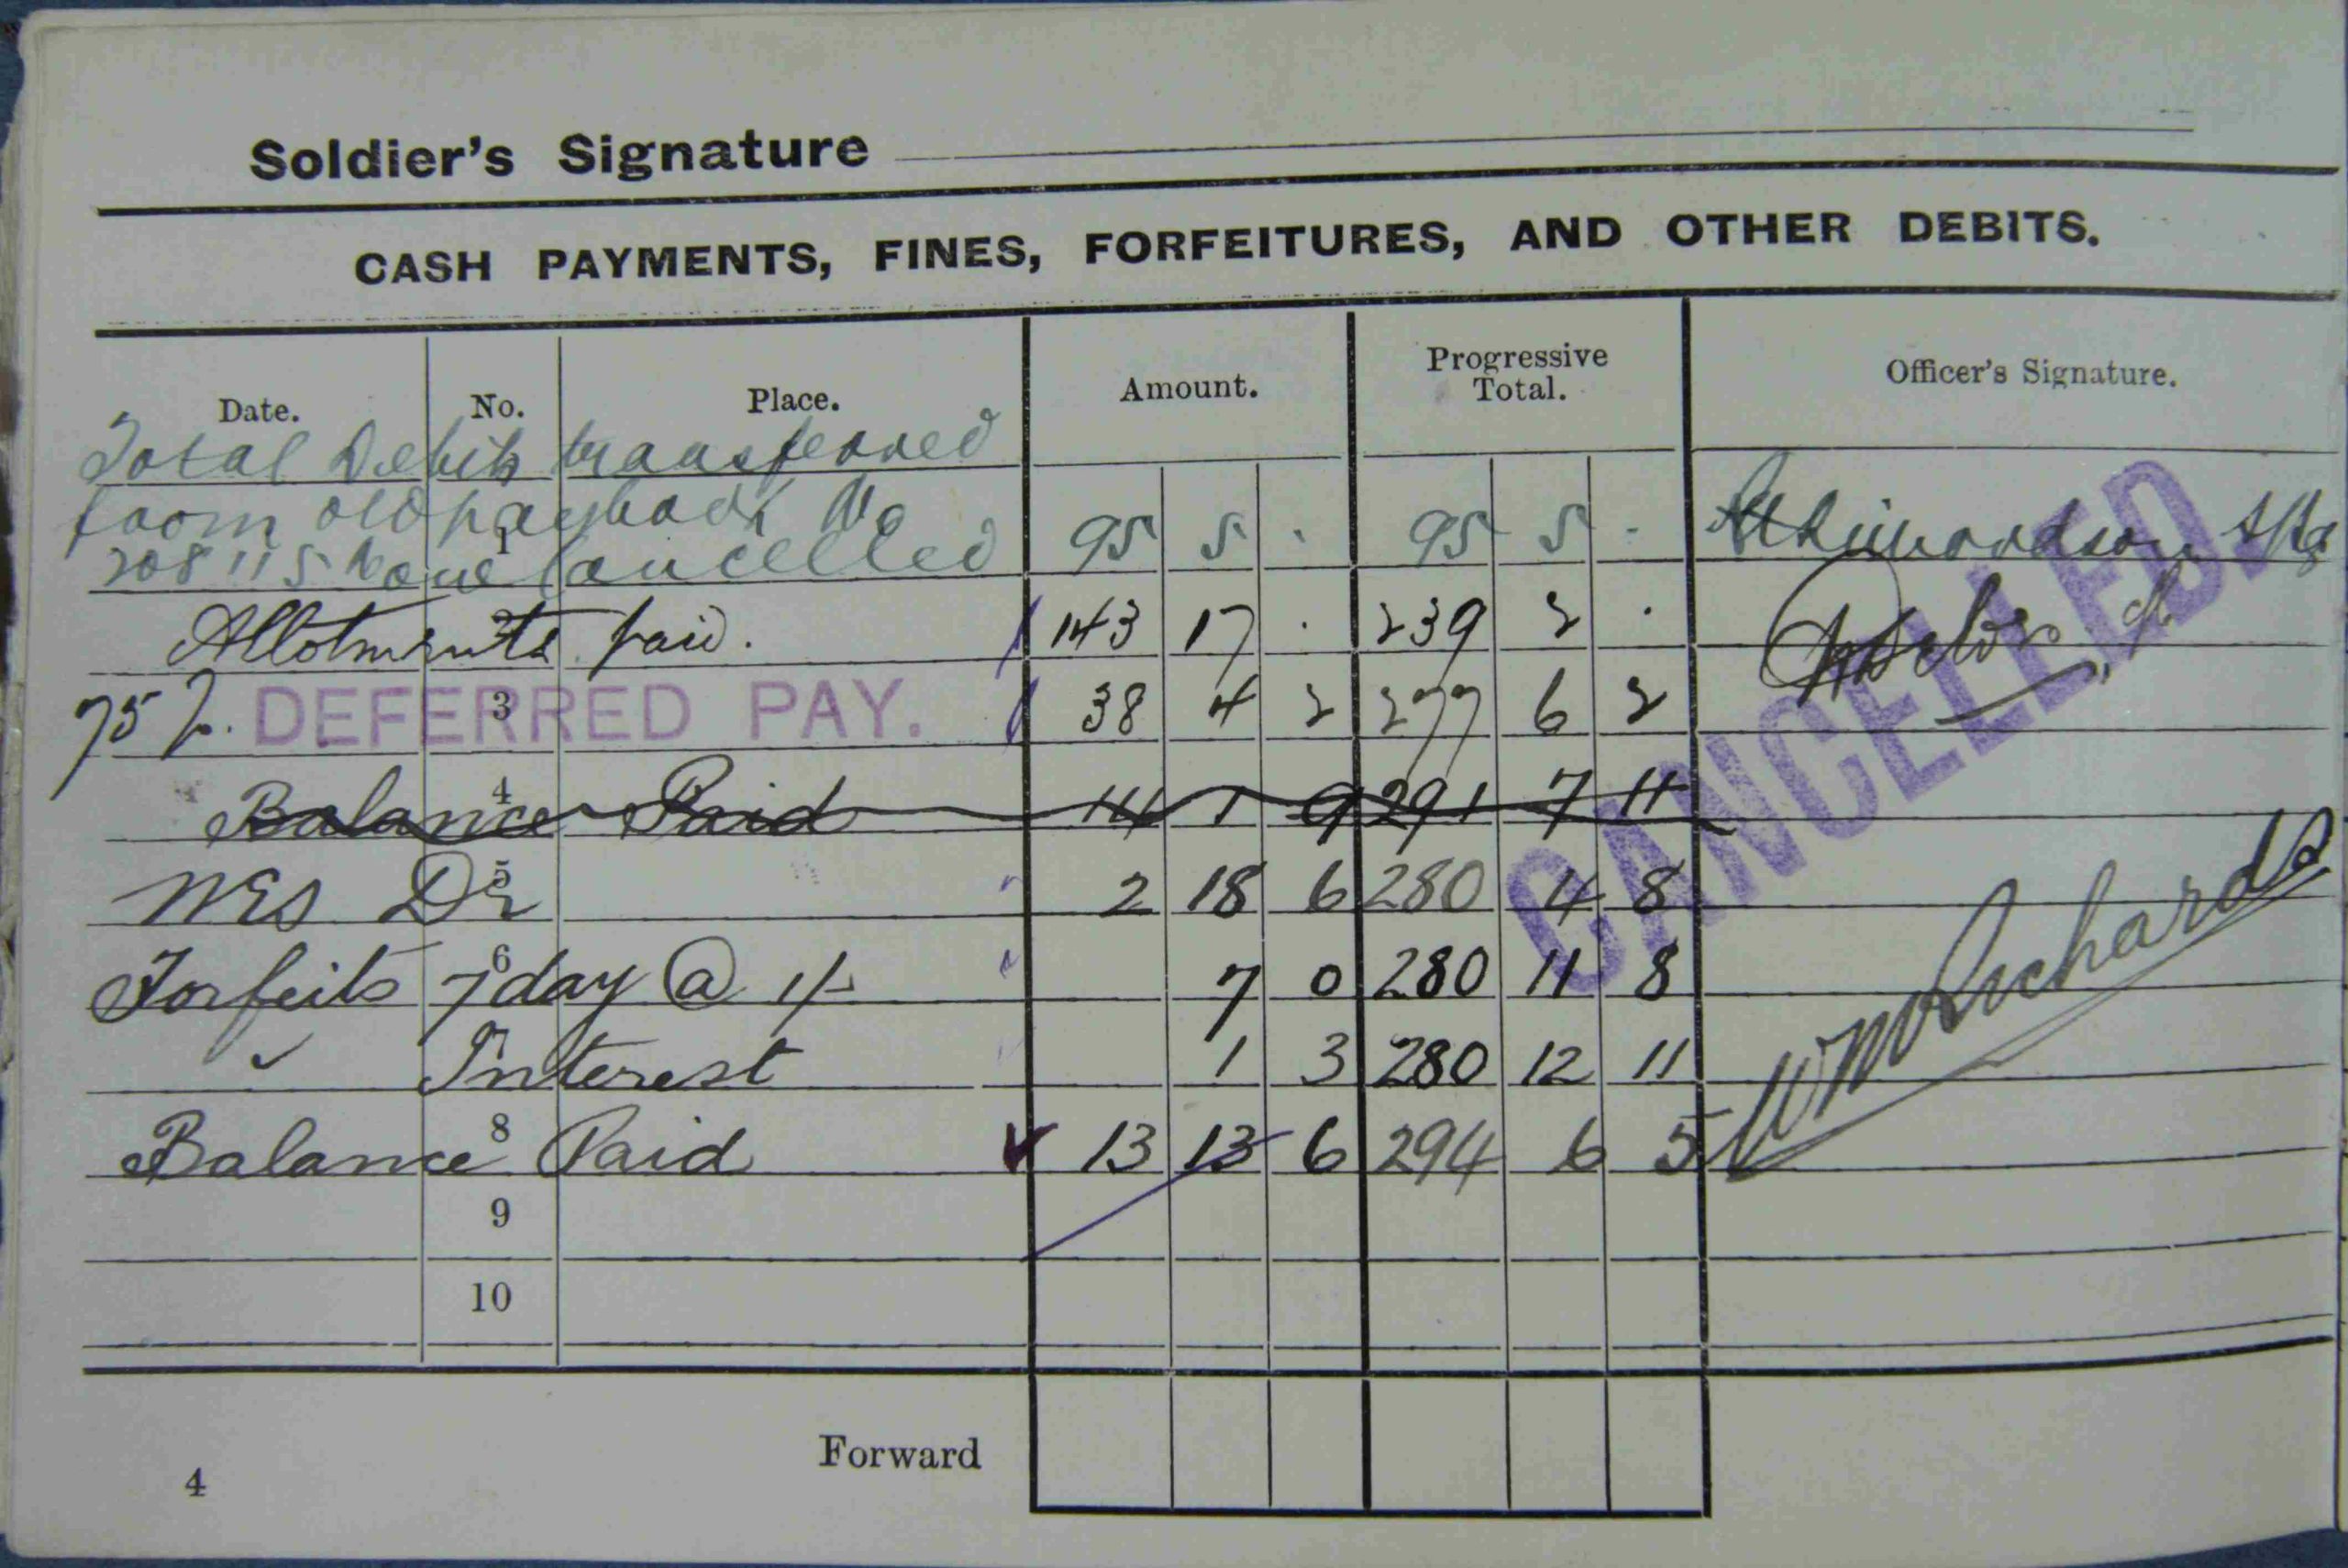 Soldier's Signature
CASH PAYMENTS, FINES, FORFEITURES, AND OTHER DEBITS.
Date. No. Place. Amount. Progressive Total. Officer's Signature.
Total Debits transferred
from old paybook No
1 208115 now Cancelled 95 5 . 95 5 -
2 Allotments paid. 143 17 . 239 2 .
75 3 DEFERRED PAY. 38 4 2 277 6 2
4 Balance Paid 14 1 9 291 7 11
5 WES Dr 2 18 6 280 4 8
6 Forfeits 7 day @ 1/- 7 0 280 11 8
7 " Interest 1 3 280 12 11
8 Balance Paid 13 13 6 294 6 5
9
10
CANCELLED.
Richards
Forward
4